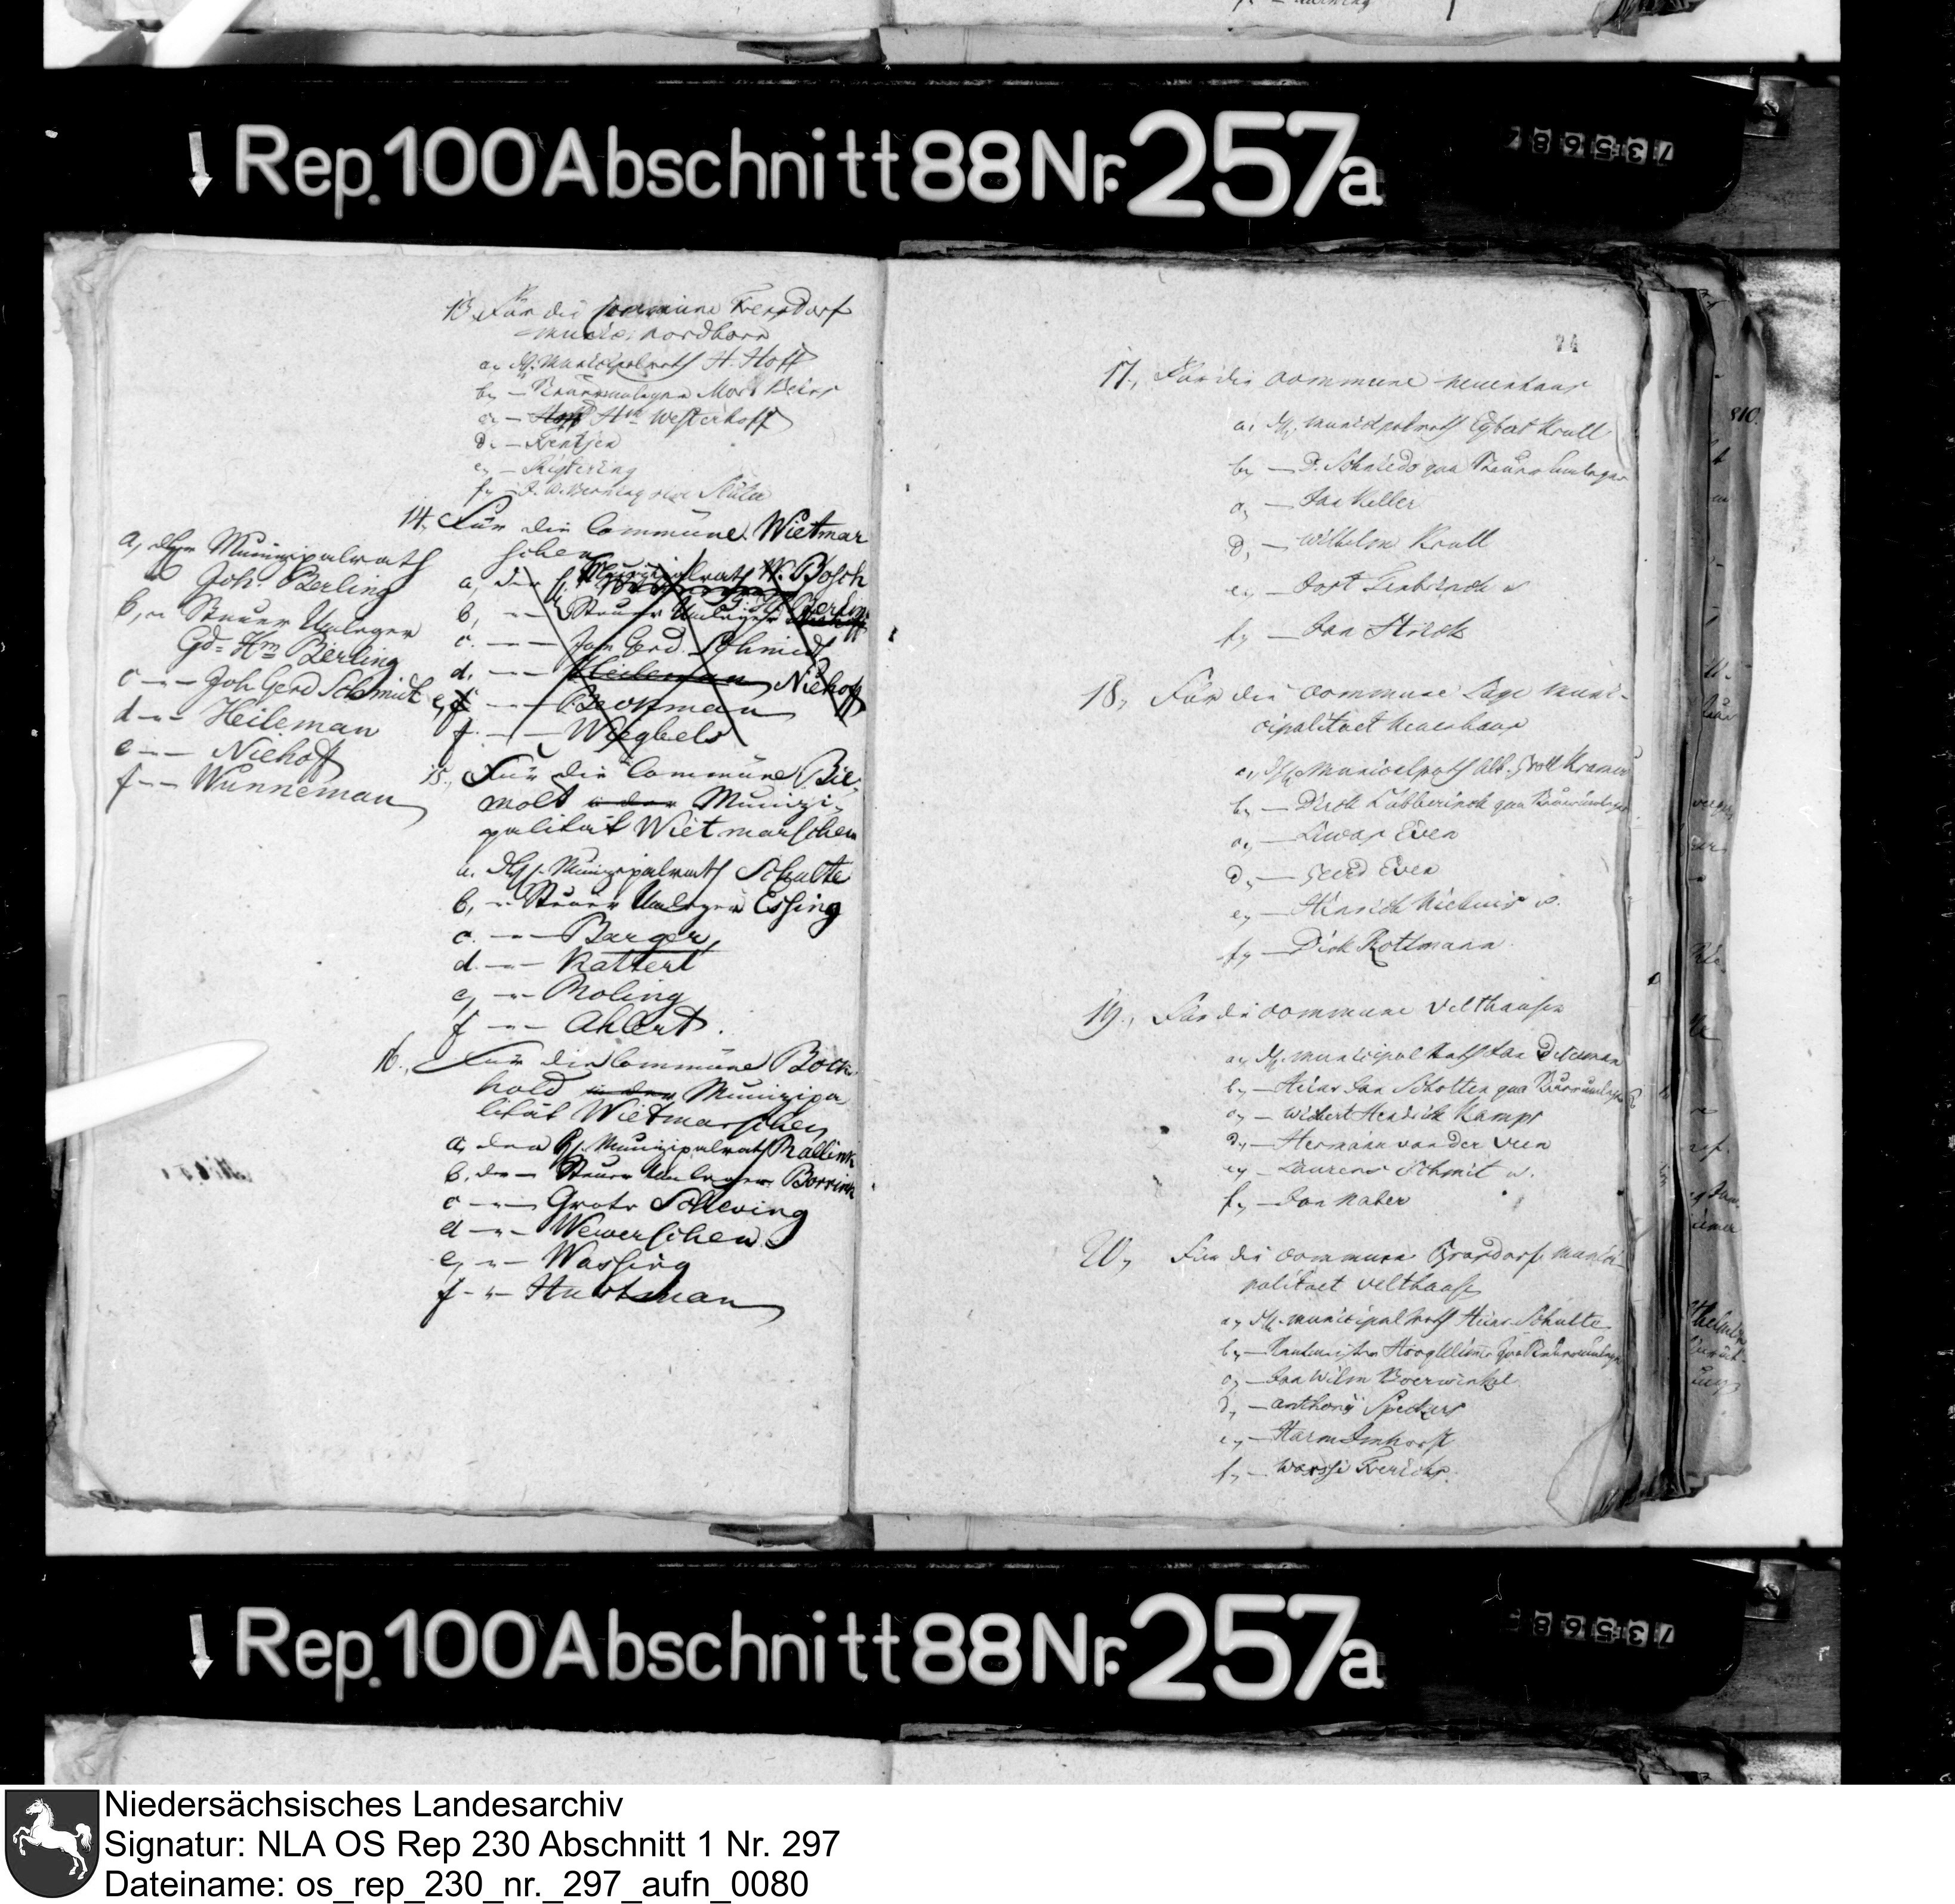 Rep. 100 Abschnitt 88 Nr. 257a
13, Für die Commüne Frensdorf
munic. nordhorn
a, H. Municipalrath H. Hoff
b, — Steuerumleger
c, — Hoff Hk Westerhoff
d, — Frentjen
e, —
f, —
14. Für die Commüne Wietmar
schen
a, der H. Munizipalrath W. Bosch
b, -- Steuer Umleger G. H. Berling
c. -- Jan Gerd. Schmidt
d. -- Heileman Niehoff
e, -- Brockman
f. -- Wiegbels
a, dHr Munizipalrath
Joh. Berling
b, " Steuer Umleger
Gd= Hm Berling
c -- Joh Gerd Schmidt
d -- Heileman
e -- Niehoff
f -- Wunneman
15., Für die Commüne Bie
molt in der Munizi-
palität Wietmarschen
a. dH. Munizipalrath Schulte
b, " Steuer Umleger Essing
c. -- Barger,
d. -- Rattert
e, -- Roling
f -- Ahlert.
16., Für die Commüne Bock
hold in der Munizipa
lität Wietmarschen
a, den H. Munizipalrath Rallink
b, den Steuer Umleger Borrink
c -- Grote Scheving
d -- Wewerschen
e, -- Wassing
f -- Hartman
74
17., Für die commune neuenhaus
a, H. municipalrath Egbert Krull
b, — D. Schniedo qua Steuer Umleger
c, — Jan Keller
d, — Wilhelm Krull
e, — Jost
f, — Jan Stock
18, Für die commune Lage muni-
cipalitaet neuenhaus
a, H. Municipalrath Alb. Groll Kramer
b, — Dirck Lübberinck qua Steuerumleger
c, — Lucas Even
d, — Gerd Even
e, — Hinrich
f, — Dirk Rottmann
19., Für die commune Velthausen
a, H. municipal Rath Jan Dileman
b, — Heinr Jan Scholten qua Steuerumleger
c, — Wichert Hendrik Kamps
d, — Hermann van der Veen
e, — Laurens Schmit u.
f, — Jan Naber
20, Für die commune Grasdorf munici-
palitaet velthausen
a, H. municipal rath Heinr Schulte
b, —
c, — Jan Wilm Boerwinkel
d, — Anthony Speckers
e, — Harm Imhorst
f, — Frerichs.
810.
Rep. 100 Abschnitt 88 Nr. 257a
Niedersächsisches Landesarchiv
Signatur: NLA OS Rep 230 Abschnitt 1 Nr. 297
Dateiname: os_rep_230_nr._297_aufn_0080